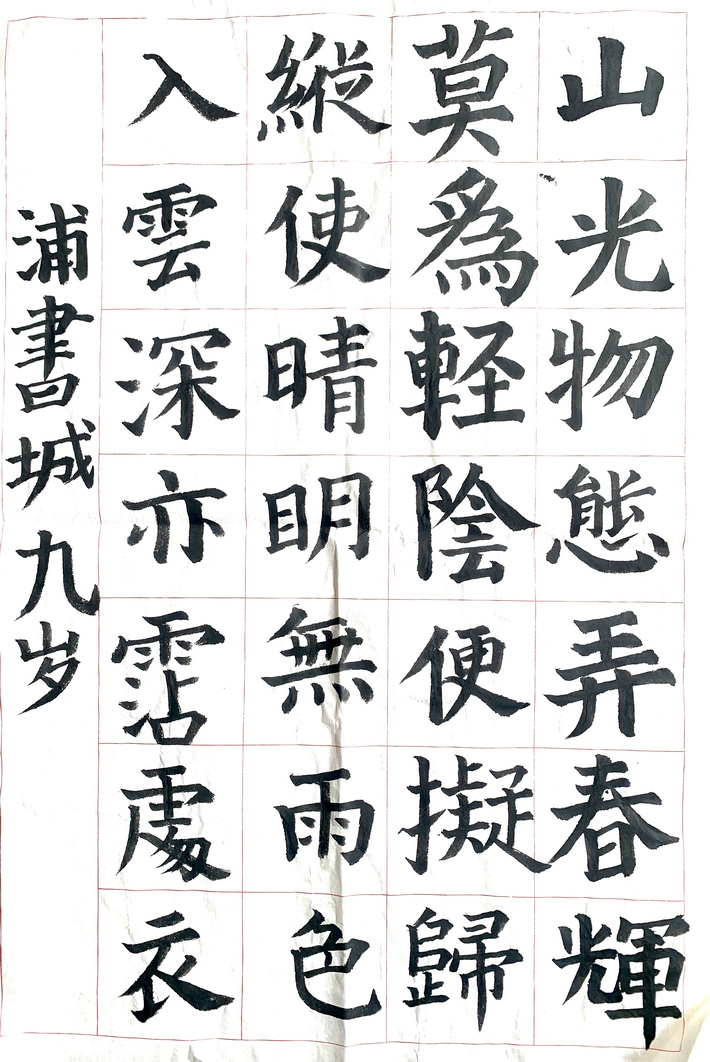 山光物態弄春輝
莫為軽陰便擬歸
縱使晴明無雨色
入雲深亦霑處衣
浦書城九岁